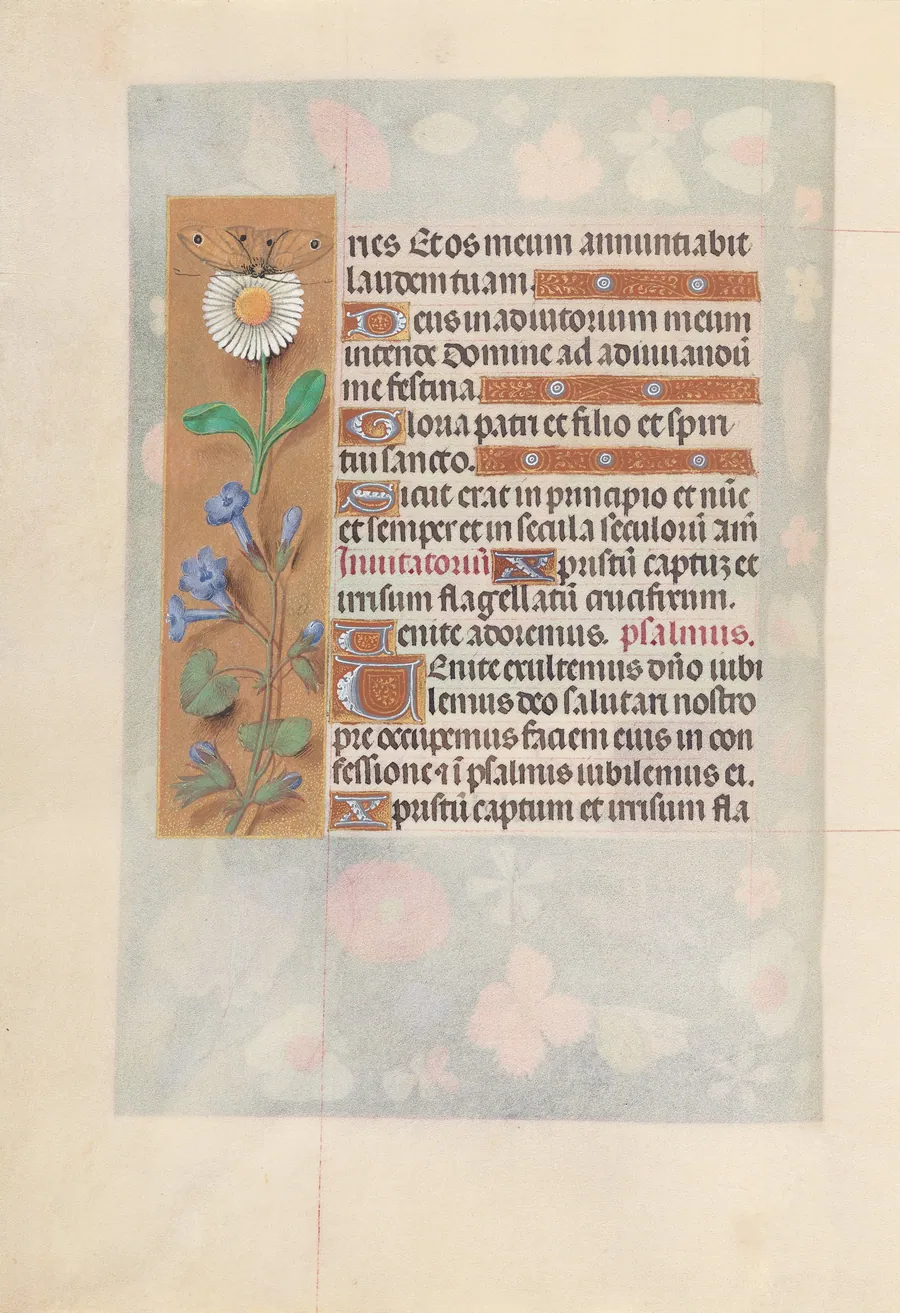 ries Et os meum annuntiabit
laudem tuam.
Deus in adiutorium meum
intende Domine ad adiuuandū
me festina.
Gloria patri et filio et spiri
tui sancto.
Sicut erat in principio et nūc
et semper et in secula seculorū am̄
Inuitatoriū Xpristū captuʒ et
irrisum flagellatū crucifixum.
Uenite adoremus. psalmus.
UEnite exultemus dn̄o iubi
lemus deo salutari nostro
pre occupemus faciem eius in con
fessione ⁊ ī psalmis iubilemus ei.
Xpristū captum et irrisum fla